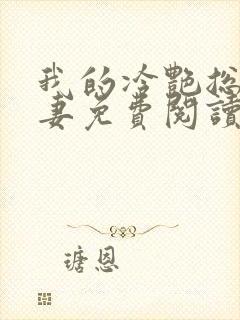 我的冷艷总
妻免費閱讀
瑭恩